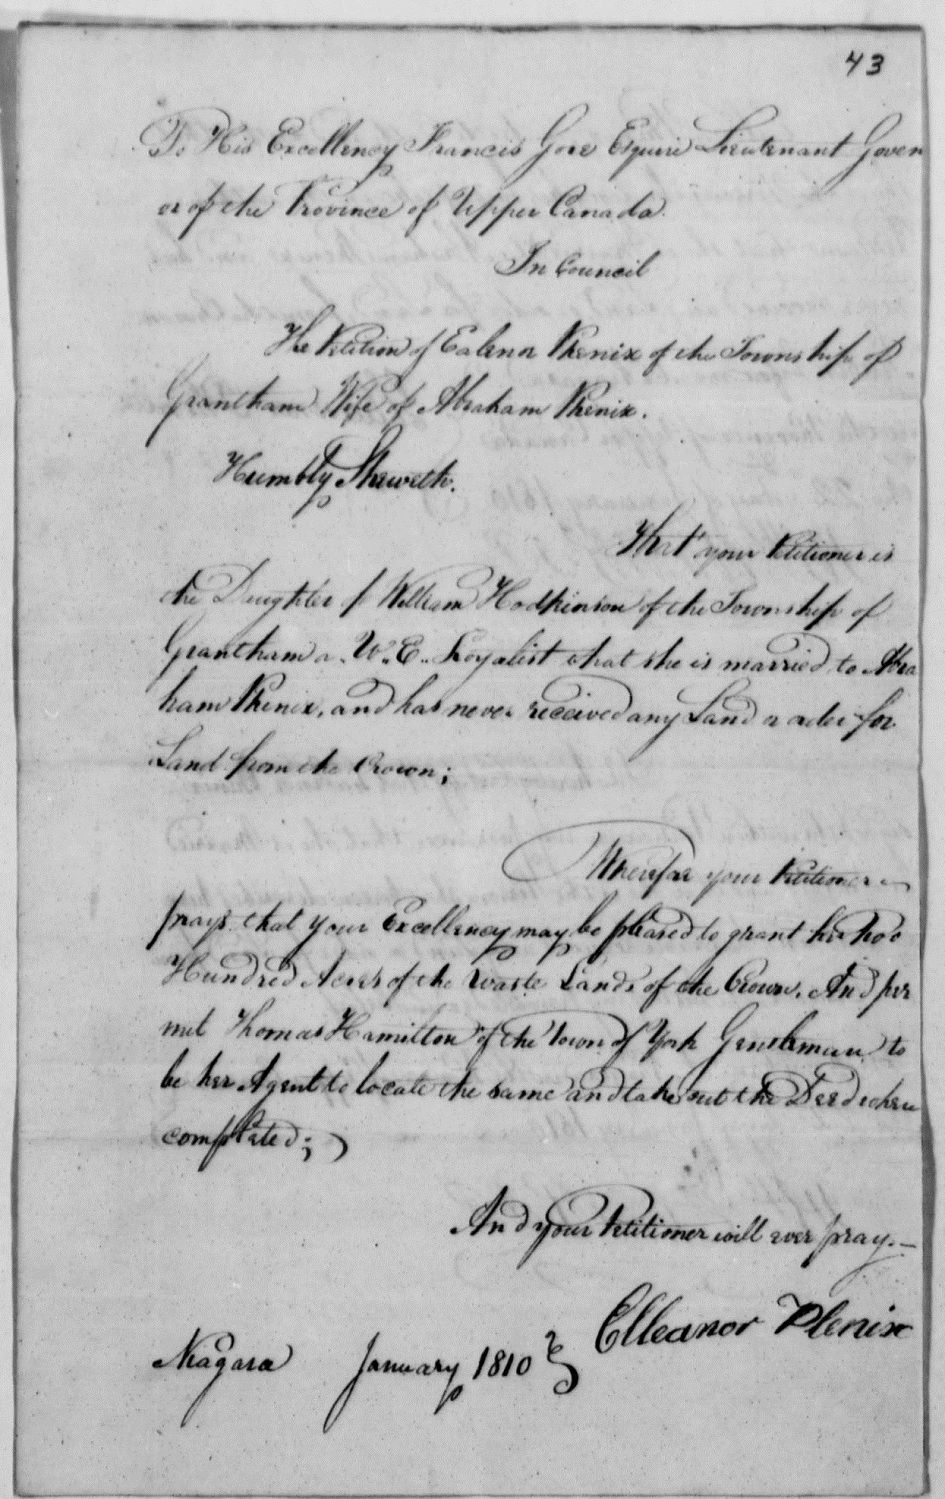 43
To His Excellency Francis Gore Esquire Lieutenant Govern
or of the Province of Upper Canada.
In Council
The Petition of Ealenor Phenix of the Township of
Grantham Wife of Abraham Phenix.
Humbly Sheweth.
That your Petitioner is
the Daughter of William Hodkinson of the Township of
Grantham a. U. E. Loyalist that she is married to Abra
ham Phenix, and has never received any Land or order for
Land from the Crown;
Wherefore your Petitioner
prays that your Excellency may be pleased to grant her two
Hundred Acres of the Waste Lands of the Crown. And per
mit Thomas Hamilton of the Town of York Gentleman to
be her Agent to locate the same and take out the Deed when
completed;
And your Petitioner will ever pray.—
Elleanor Phenix
Niagara January 1810